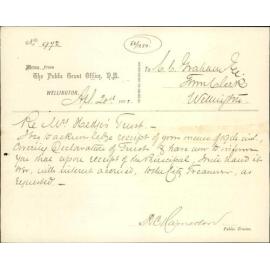 No 972
Memo. from
The Public Trust Office, N.Z.
WELLINGTON,
Sept. 20th 188
To C. C. Graham Esq
Town Clerk
Wellington
Re Mrs Trust.
I beg to acknowledge receipt of your memo of 19th inst,
covering Declaration of Trust & have now to inform
you that upon receipt of the Principal, I will hand it
over, with interest accrued, to the City Treasurer, as
requested.
Public Trustee.